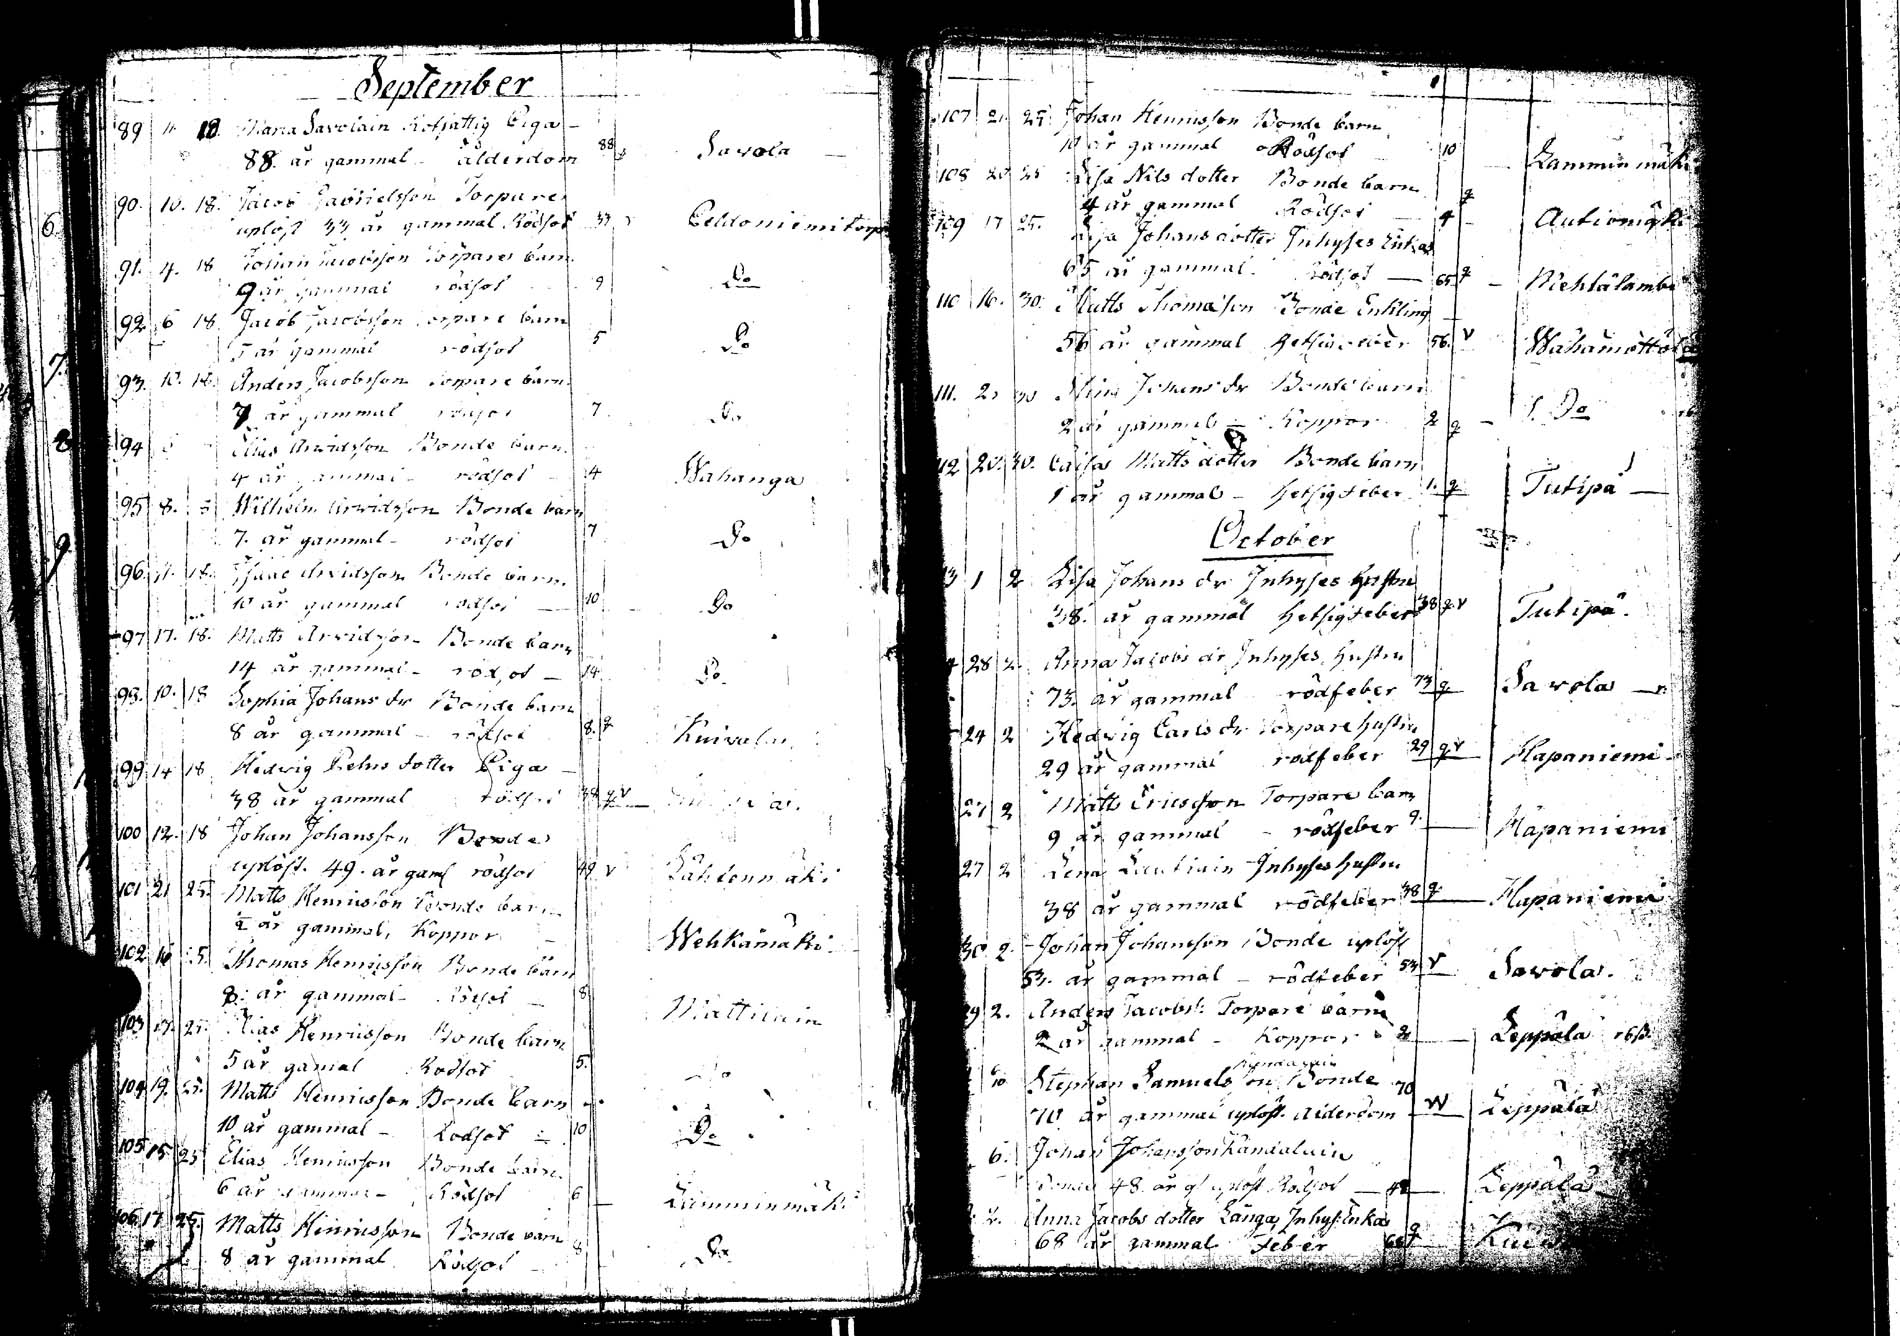 September
89 11. 18. Maria Savolain Rotfattig Piga
88. år gammal - ålderdom 88 Savola
90. 10. 18. Jacob Gabrielsson Torpare
uplöst 33 år gammal Rödsot 33 v Peldoniemi torp
91. 4. 18 Johan Jacobsson Torpares barn
9 år gammal rödsot 9 Do
92 6 18 Jacob Jacobsson Torpare barn
5 år gammal rödsot 5 Do
93. 10. 18. Anders Jacobsson Torpare barn
7 år gammal rödsot 7. Do
94 Elias Arvidsson Bonde barn
4 år gammal - rödsot 4 Wahanga
95 8. Wilhelm Arvidsson Bonde barn
7. år gammal - rödsot 7 Do
96 18. Isaac Arvidsson Bonde barn
10 år gammal rödsot 10 Do
97 17. 18. Matts Arvidsson Bonde barn
14 år gammal - rödsot 14 Do
98. 10. 18 Sophia Johans dr Bonde barn
8 år gammal - rödsot 8. q Kuivala
99 14 18 Hedvig dotter Piga
38 år gammal rödsot 38 q v
100 12. 18 Johan Johansson Bonde
uplöst. 49. år gaml rödsot 49 v Lähtenmäki
101 21 25. Matts Henricsson Bonde barn
år gammal, Koppor Wehkamäki
102 16 Thomas Henricsson Bonde barn
8. år gammal - Rödsot 8. Mattilain
103 17. 25. Elias Henricsson Bonde barn
5 år gamal Rödsot 5. Do
104 19. 25. Matts Henricsson Bonde barn
10 år gammal - Rodsot 10 Do
105 15 25 Elias Henricsson Bonde barn
6 år gammal - Rödsot 6 Lamminmäki
106 17 25. Matts Henricsson Bonde barn
8 år gammal Rödsot 8 Do
107 21 25 Johan Henricsson Bonde barn
10 år gammal Rödsot 10 Lamminmäki
108 20 25 Lisa Nils dotter Bonde barn
4 år gammal Rödsot 4 q Autiomäki
109 17 25. Lisa Johans dotter Inhyses Enka
65 år gammal - Rödsot 65 q Riehkälambi
110 16. 30. Matts Thomasson Bonde Enkling
56 år gammal Hetsigfeber 56. v Wahamottola
111. 21 30 Stina Johans dr Bonde barn
2 år gammal - Koppor 2 q Do
112 20. 30. Caisa Matts dotter Bonde barn
1 år gammal - hetsigfeber 1. q Tutipä
October
1 2 Lisa Johans dr Inhyses Hustru
38. år gammal Hetsigfeber 38 q v Tutipä.
28 2. Anna Jacobs dr Inhyses Hustru
73. år gammal rödfeber 73 q Savola
24 2 Hedvig Carls dr Torpare hustru
29 år gammal rödfeber 29 q v Hapaniemi
27 2 Matts Ericsson Torpare barn
9 år gammal - rödfeber 9. Hapaniemi
27 2 Lena Inhyses Hustru
38 år gammal rödfeber 38 q Hapaniemi
30 2. Johan Johansson Bonde uplöst
53. år gammal - rödfeber 53 v Savola.
29 2. Anders Jacobs: Torpare barn
2 år gammal - Koppor 2 Leppälä
Stephan Samuelsson Bonde
70 år gammal uplöst. Ålderdom 70 W Leppälä
6. Johan Johansson Kandalain
Bonde 48 år gl uplöst Rödsot 48 Leppälä
Anna Jacobs dotter Långa Inhys: Enka
68 år gammal Feber 68 q